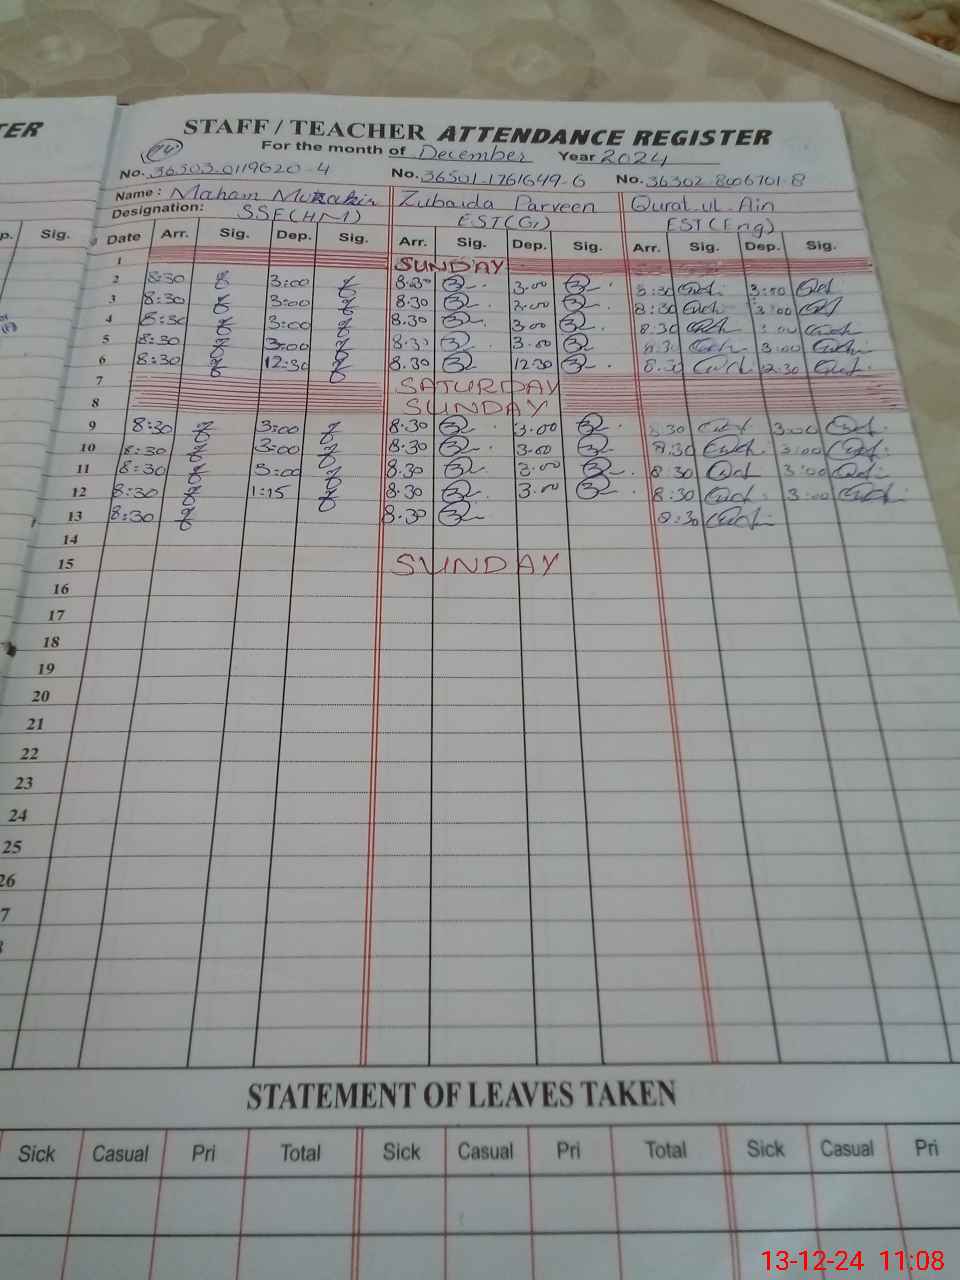 TER
STAFF / TEACHER ATTENDANCE REGISTER
14 For the month of December Year 2024
No. 36503-0119620-4 No. 36501-1761649-6 No. 36302-8006701-8
Name: Maham Zubaida Parveen Qurat.ul.Ain
Designation: SSE(HM) EST(G) EST(Eng)
p. Sig. Date Arr. Sig. Dep. Sig. Arr. Sig. Dep. Sig. Arr. Sig. Dep. Sig.
1 SUNDAY
2 8:30 3:00 8.30 3.00 8:30 3:00
3 8:30 3:00 8.30 3.00 8:30 3:00
4 8:30 3:00 8.30 3.00 8:30
5 8:30 3:00 8.30 3.00 8.30 3:00
6 8:30 12:30 8.30 12.30 8.30 2.30
7 SATURDAY
8 SUNDAY
9 8:30 3:00 8.30 3.00 8.30 3:00
10 8:30 3:00 8.30 3.00 8.30 3:00
11 8:30 3:00 8.30 3.00 8:30 3:00
12 8:30 1:15 8.30 3.00 8:30 3:00
13 8:30 8.30 8:30
14
15 SUNDAY
16
17
18
19
20
21
22
23
24
25
26
7
STATEMENT OF LEAVES TAKEN
Sick Casual Pri Total Sick Casual Pri Total Sick Casual Pri
13-12-24 11:08